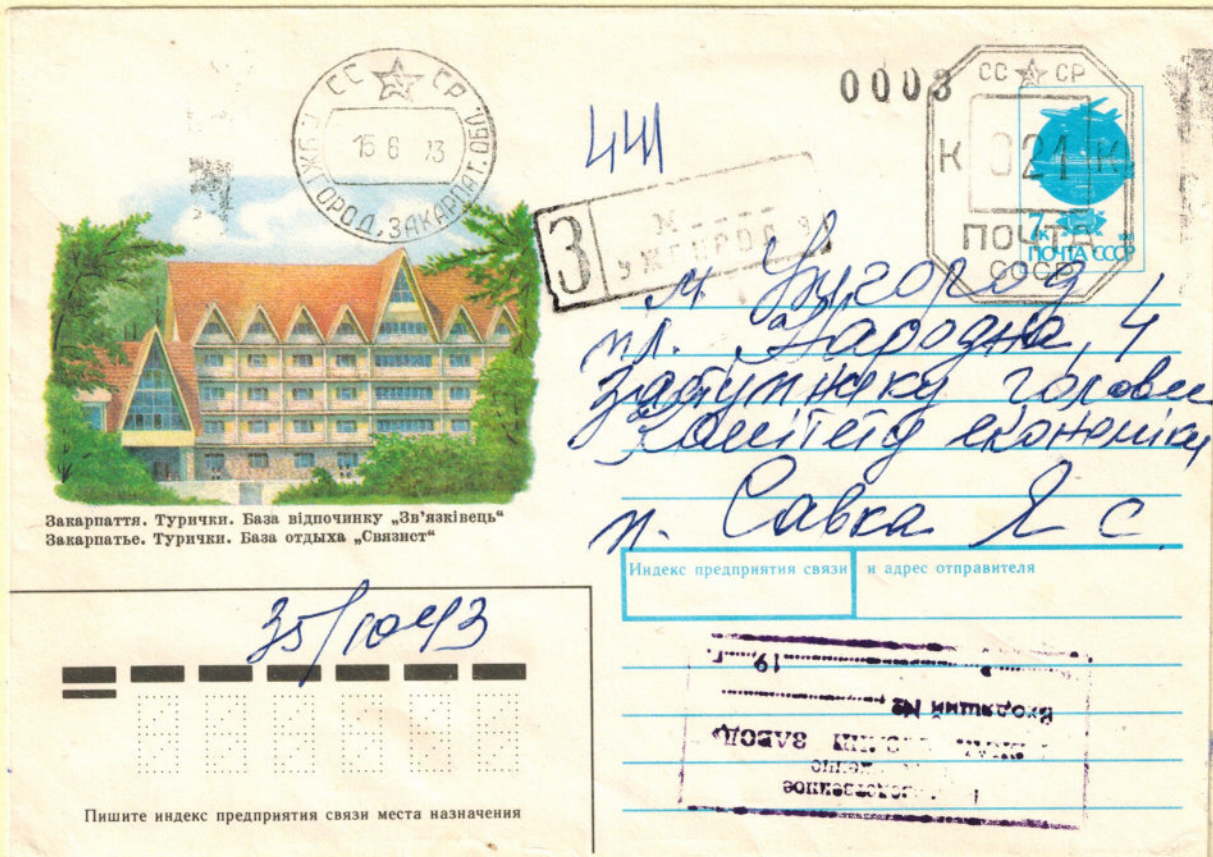 СС СР
15 6 93
УЖГОРОД, ЗАКАРПАТ. ОБЛ.
441
0008
СС СР
К 021 К
ПОЧТА
СССР
7 к
ПОЧТА СССР
З
УЖГОРОД 9
м. Ужгород
пл. Народна, 4
Заступнику голови
Комітету економіки
п. Савка Я С
Закарпаття. Турички. База відпочинку „Зв'язківець“
Закарпатье. Турички. База отдыха „Связист“
Индекс предприятия связи и адрес отправителя
35/1043
Пишите индекс предприятия связи места назначения
ЗАВОД
Входящий №
19 г.